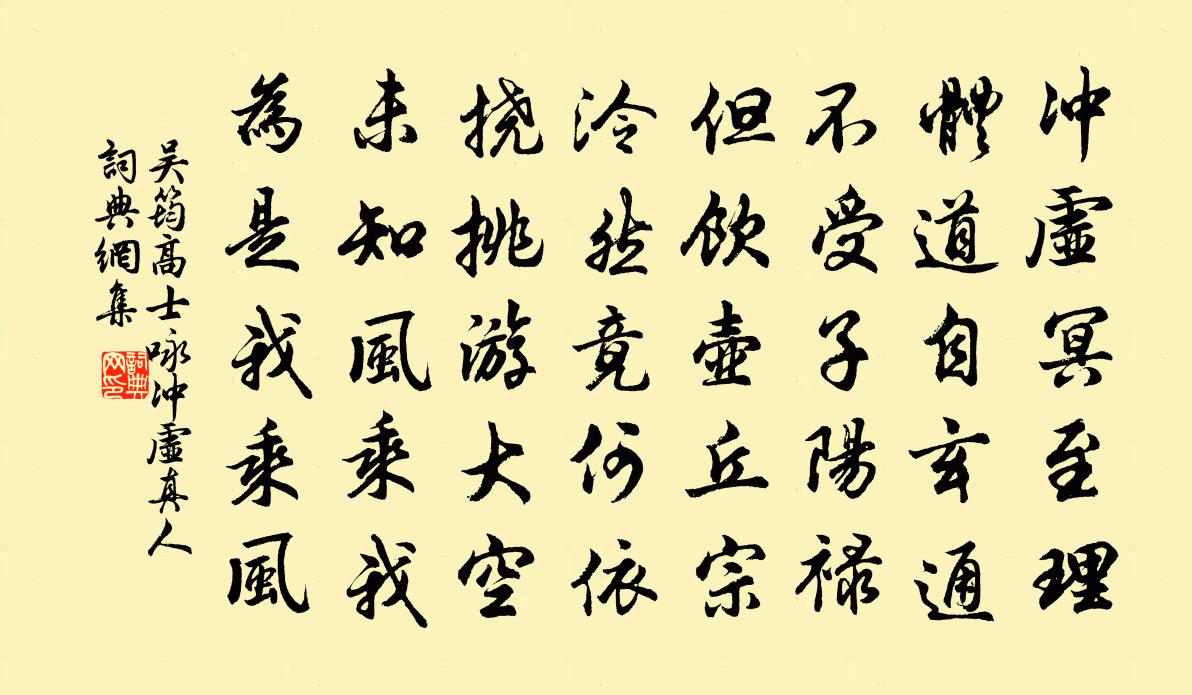 冲虛冥至理
體道自玄通
不受子陽禄
但飲壺丘宗
泠然竟何依
撓挑游大空
未知風乘我
為是我乘風
吴筠高士咏冲虛真人
詞典網集
詞典网印